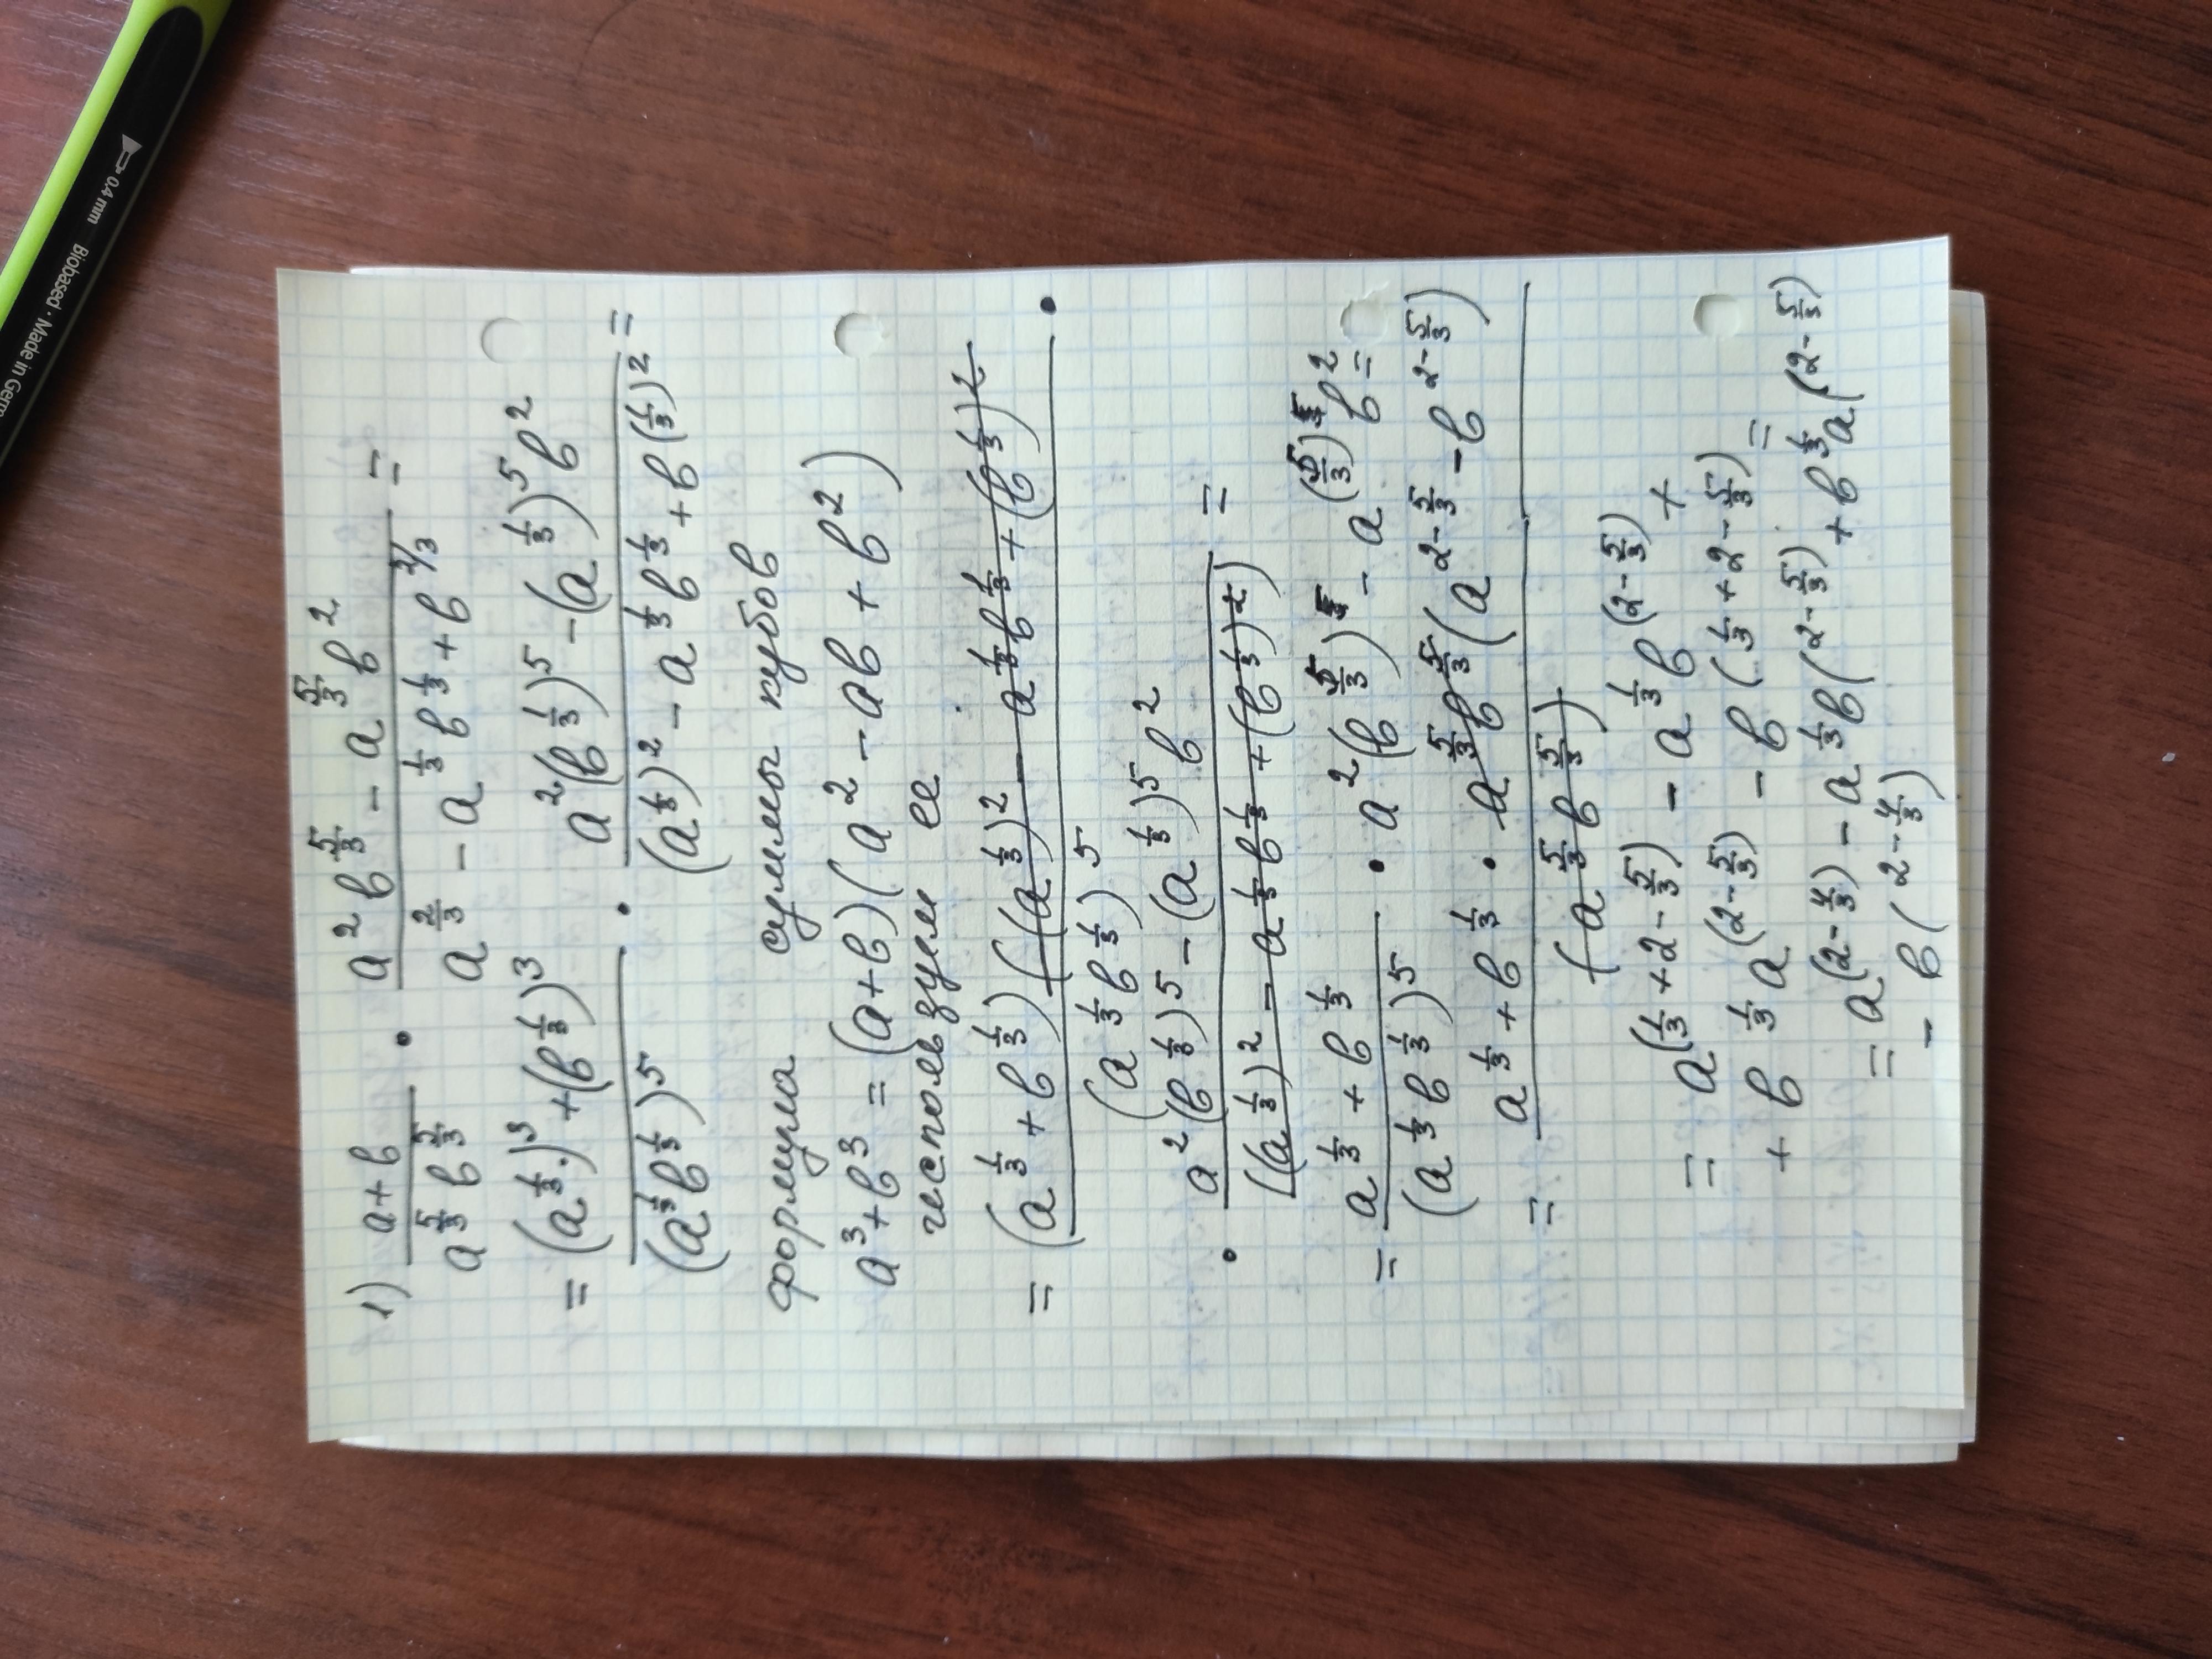 1) (a+b)/(a^(5/3) b^(5/3)) · (a² b^(5/3) - a^(5/3) b²)/(a^(2/3) - a^(1/3) b^(1/3) + b^(2/3)) =
= ((a^(1/3))³ + (b^(1/3))³)/((a^(1/3) b^(1/3))⁵) · (a² (b^(1/3))⁵ - (a^(1/3))⁵ b²)/((a^(1/3))² - a^(1/3) b^(1/3) + b^((1/3))²) =
формула суммы кубов
a³+b³ = (a+b)(a² - ab + b²)
используем ее
= (a^(1/3) + b^(1/3))((a^(1/3))² - a^(1/3) b^(1/3) + (b^(1/3))²)/((a^(1/3) b^(1/3))⁵) ·
· (a² (b^(1/3))⁵ - (a^(1/3))⁵ b²)/((a^(1/3))² - a^(1/3) b^(1/3) + (b^(1/3))²) =
= (a^(1/3) + b^(1/3))/((a^(1/3) b^(1/3))⁵) · a² (b^(5/3)) - a^(5/3) b² =
= (a^(1/3) + b^(1/3) · a^(5/3) b^(5/3) (a^(2-5/3) - b^(2-5/3)))/(a^(5/3) b^(5/3))
= a^(1/3+2-5/3) - a^(1/3) b^(2-5/3) +
+ b^(1/3) a^(2-5/3) - b^(1/3+2-5/3) =
= a^(2-4/3) - a^(1/3) b^(2-5/3) + b^(1/3) a^(2-5/3)
- b^(2-4/3)
0.4 mm Biobased · Made in Germ